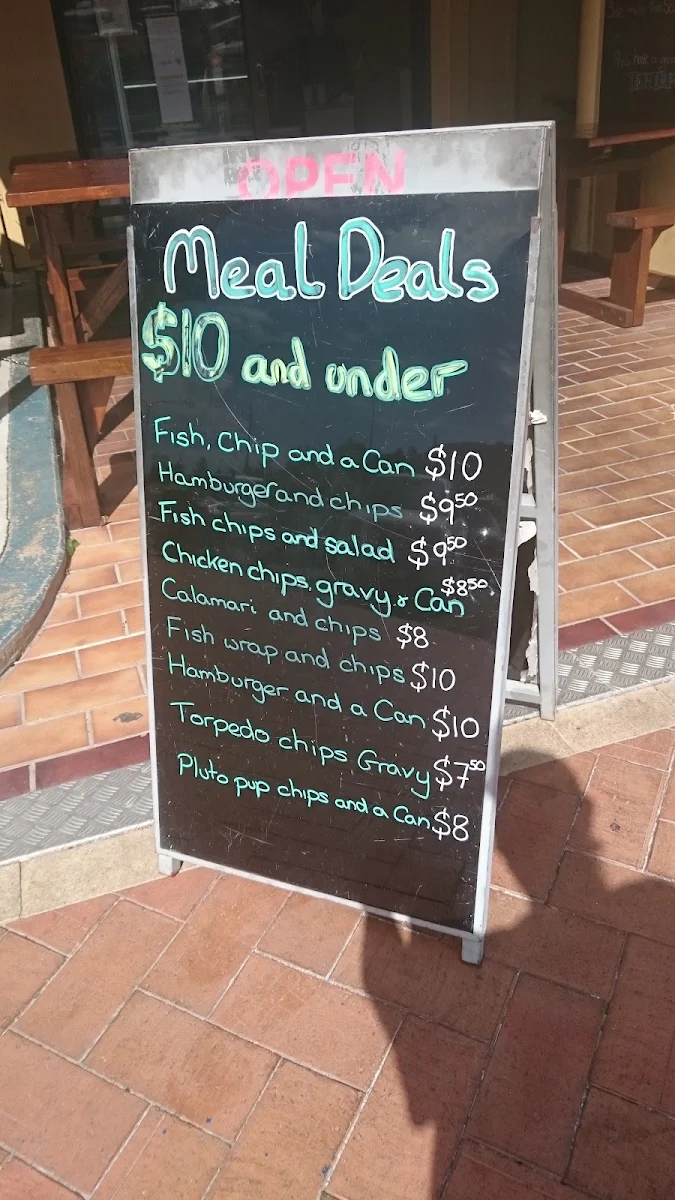 OPEN
Meal Deals
$10 and under
Fish, Chip and a Can $10
Hamburger and chips $950
Fish chips and salad $950
Chicken chips, gravy & Can $850
Calamari and chips $8
Fish wrap and chips $10
Hamburger and a Can $10
Torpedo chips Gravy $750
Pluto pup chips and a Can $8